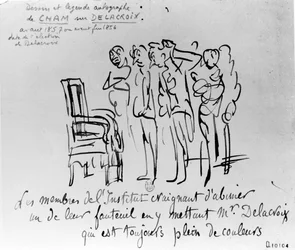 Dessin et légende autographe
de CHAM sur DELACROIX.
avant 1857 ou avant
date de l'élection
de Delacroix
Les membres de l'Institut craignant d'abimer
un de leur fauteuil en y mettant Mr. Delacroix
qui est toujours plein de couleurs
D10104